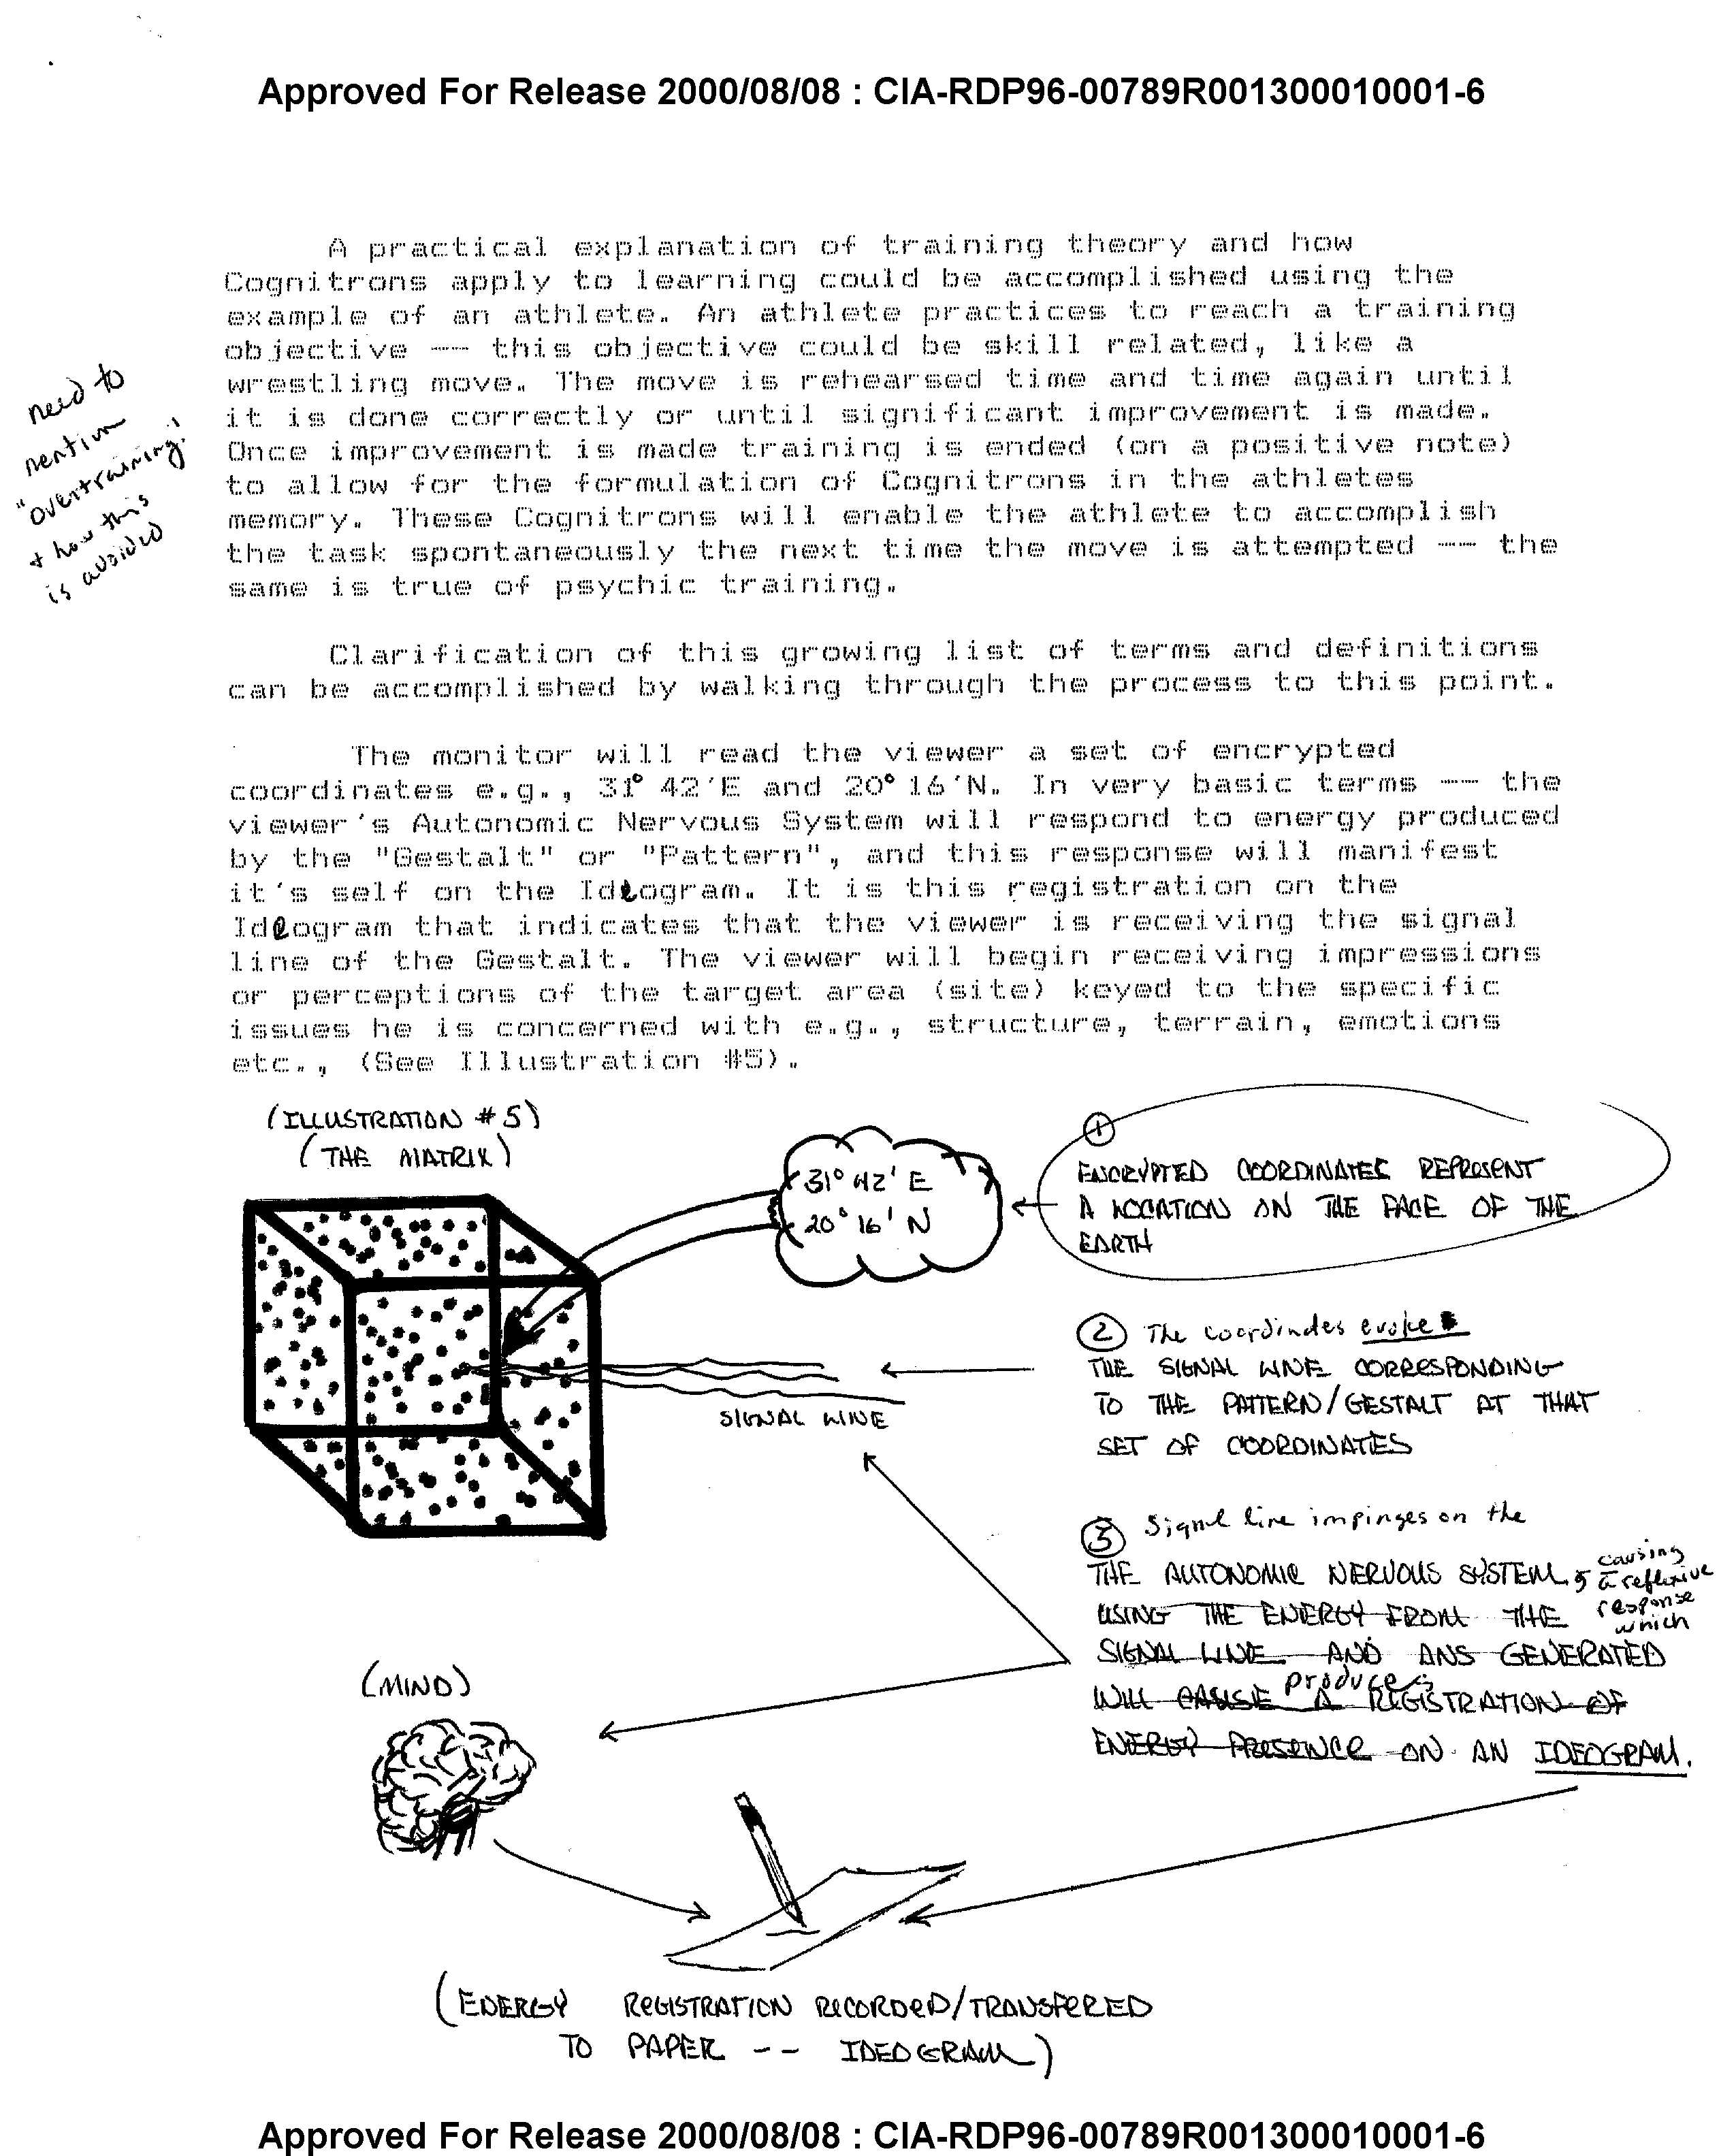 Approved For Release 2000/08/08 : CIA-RDP96-00789R001300010001-6
A practical explanation of training theory and how
Cognitrons apply to learning could be accomplished using the
example of an athlete. An athlete practices to reach a training
objective -- this objective could be skill related, like a
wrestling move. The move is rehearsed time and time again until
it is done correctly or until significant improvement is made.
Once improvement is made training is ended (on a positive note)
to allow for the formulation of Cognitrons in the athletes
memory. These Cognitrons will enable the athlete to accomplish
the task spontaneously the next time the move is attempted -- the
same is true of psychic training.
need to
mention
"overtraining"
+ how this
is avoided
Clarification of this growing list of terms and definitions
can be accomplished by walking through the process to this point.
The monitor will read the viewer a set of encrypted
coordinates e.g., 31° 42'E and 20° 16'N. In very basic terms -- the
viewer's Autonomic Nervous System will respond to energy produced
by the "Gestalt" or "Pattern", and this response will manifest
it's self on the Ideogram. It is this registration on the
Ideogram that indicates that the viewer is receiving the signal
line of the Gestalt. The viewer will begin receiving impressions
or perceptions of the target area (site) keyed to the specific
issues he is concerned with e.g., structure, terrain, emotions
etc., (See Illustration #5).
(ILLUSTRATION # 5)
(THE MATRIX)
31° 42' E
20° 16' N
1
ENCRYPTED COORDINATES REPRESENT
A LOCATION ON THE FACE OF THE
EARTH
2 The coordinates evoke
THE SIGNAL LINE CORRESPONDING
TO THE PATTERN/GESTALT AT THAT
SET OF COORDINATES
SIGNAL LINE
3 Signal line impinges on the
THE AUTONOMIC NERVOUS SYSTEM, causing
a reflexive
response
which
USING THE ENERGY FROM THE
SIGNAL LINE AND ANS GENERATED
produces
WILL CAUSE A REGISTRATION OF
ENERGY PRESENCE ON AN IDEOGRAM.
(MIND)
(ENERGY REGISTRATION RECORDED/TRANSFERED
TO PAPER -- IDEOGRAM)
Approved For Release 2000/08/08 : CIA-RDP96-00789R001300010001-6